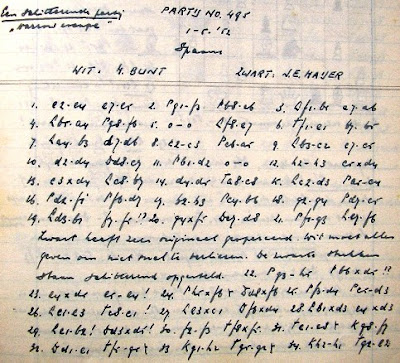 Een schitterende partij
"narrow escape"
PARTIJ NO. 495
1-5-'52
Spaans
WIT: H. BUNT ZWART: J.E. MAYER
1. e2-e4 e7-e5 2. Pg1-f3 Pb8-c6 3. Lf1-b5 a7-a6
4. Lb5-a4 Pg8-f6 5. 0-0 Lf8-e7 6. Tf1-e1 b7-b5
7. La4-b3 d7-d6 8. c2-c3 Pc6-a5 9. Lb3-c2 c7-c5
10. d2-d4 Dd8-c7 11. Pb1-d2 0-0 12. h2-h3 c5xd4
13. c3xd4 Lc8-b7 14. d4-d5 Ta8-c8 15. Lc2-d3 Pa5-c4
16. Pd2-f1 Pf6-d7 17. b2-b3 Pc4-b6 18. g2-g4 Pd7-c5
19. Ld3-b1 f7-f5!? 20. g4xf5 Dc7-d8 21. Pf1-g3 Le7-f6
Zwart heeft zeer origineel geopereerd. Wit moet alles
geven om niet snel te verliezen. De zwarte stukken
staan schitterend opgesteld. 22. Pg3-h5 Pb6xd5!?
23. e4xd5 e5-e4! 24. Ph5xf6+ Dd8xf6 25. Pf3-d4 Pc5-d3
26. Lc1-e3 Tc8-c1! 27. Le3xc1 Df6xd4 28. Lb1xd3 e4xd3
29. Lc1-b2! Dd4xd5! 30. f2-f3 Tf8xf5 31. Te1-e8+ Kg8-f7
32. Dd1-e1 Tf5-g5+ 33. Kg1-h2 Tg5-g2+ 34. Kh2-h1 Tg2-e2